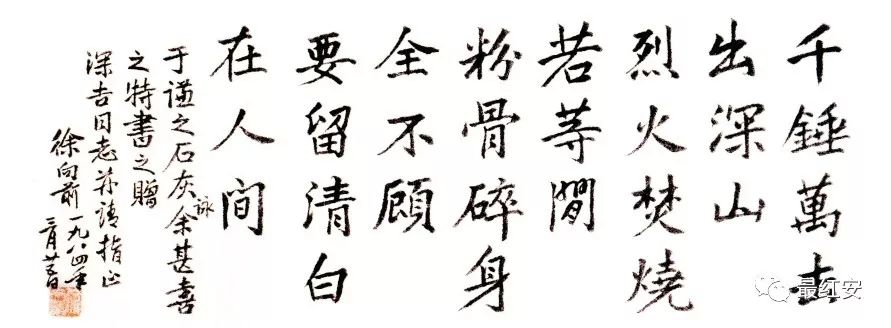 千錘萬击
出深山
烈火焚燒
若等閒
粉骨碎身
全不顧
要留清白
在人间
于谦之石灰詠余甚喜
之特書之贈
深吉同志并请指正
徐向前一九八四年
三月
最红安